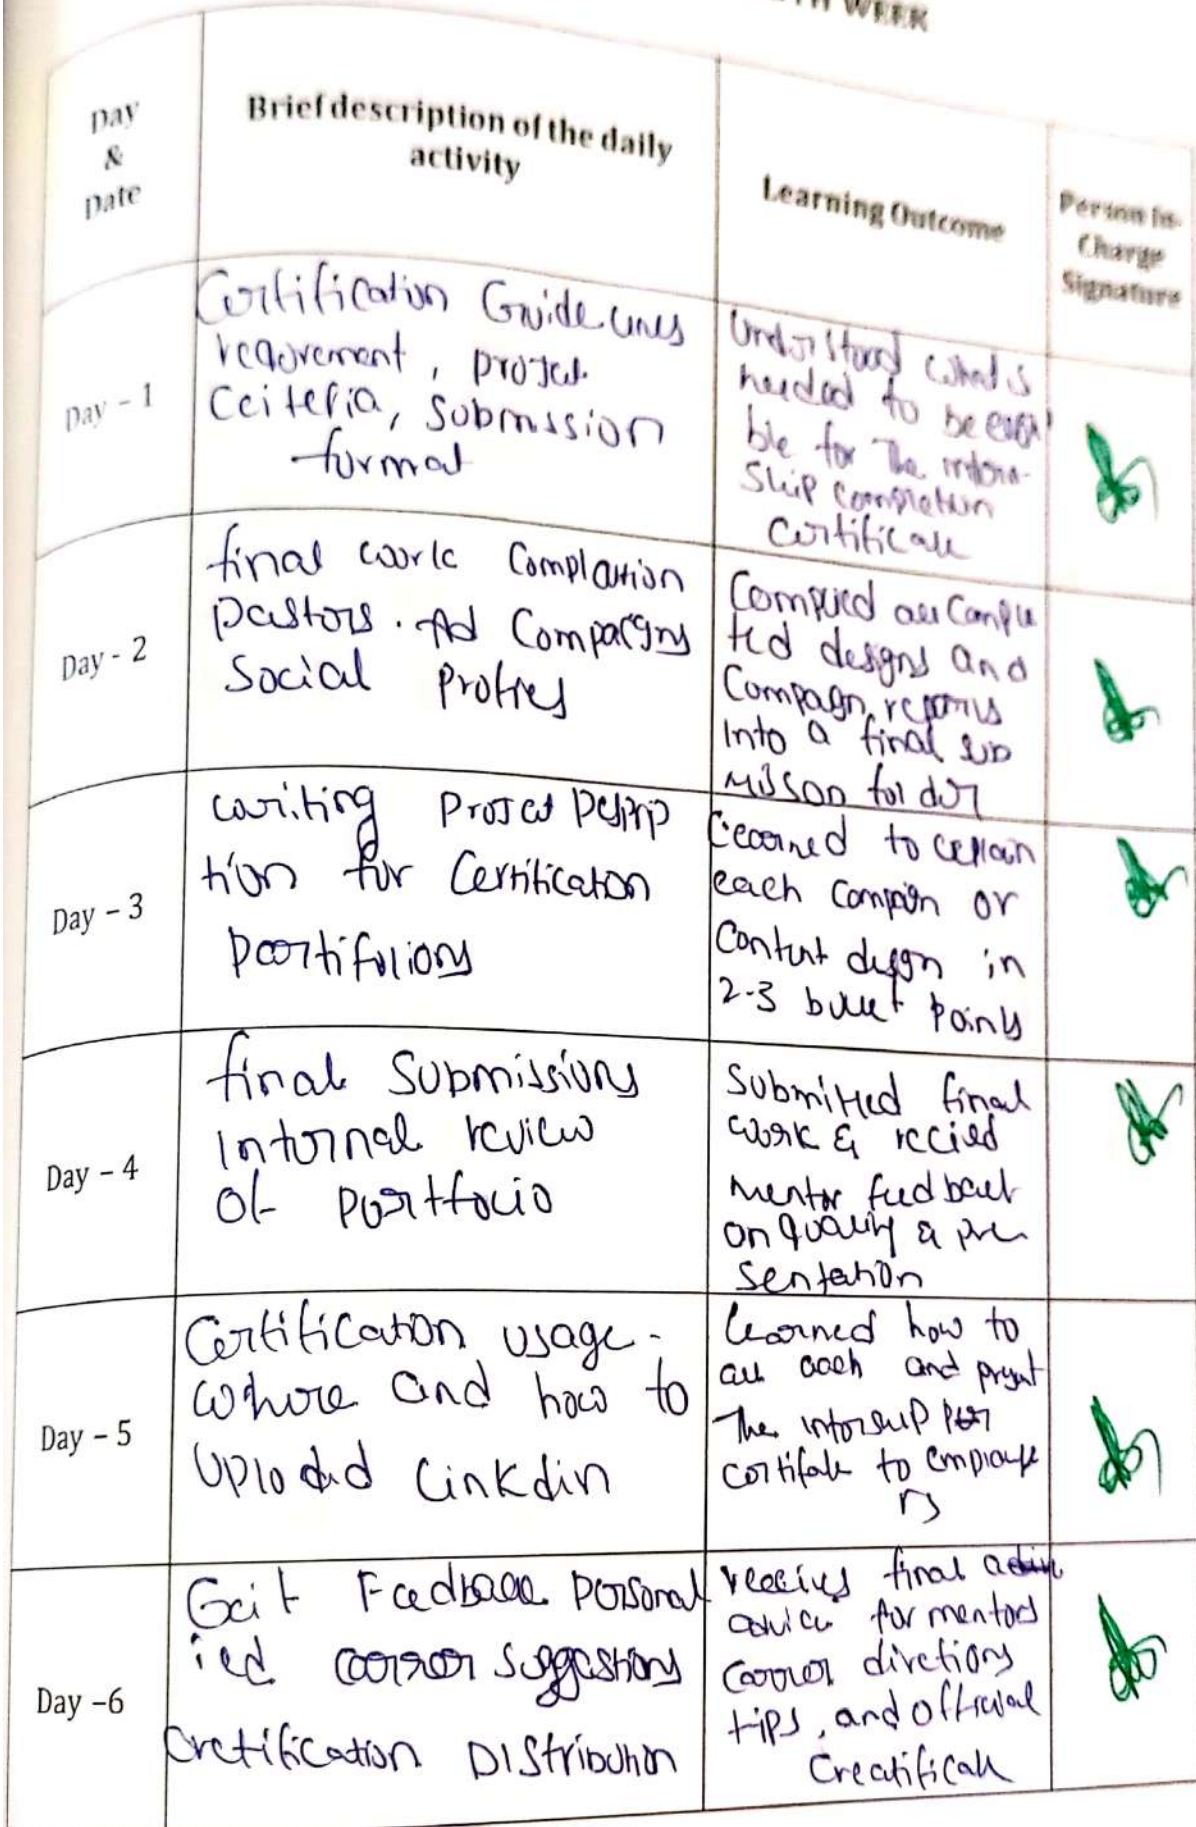 WEEK
Day
&
Date
Brief description of the daily
activity
Learning Outcome
Person In-
Charge
Signature
Day - 1
Certification Guidelines
requirement, project
Cciteria, submssion
format
Understood what is
needed to be
ble for The intern-
Ship Completion
Certificate
Day - 2
final work Complantion
Pastors. Ad Compaigns
Social Profies
Compiled all Comple
ted designs and
Compagn, reports
into a final sub
misson folder
Day - 3
writing Project
tion for Certification
Poortifolions
Leearned to
each Compain or
Content design in
2-3 bullet Points
Day - 4
final Submissions
Internal review
Of Portfolio
Submitted final
work &
Mentor feedback
on quality & pre
sentation
Day - 5
Certification usage -
Where and how to
Uploadd Linkdin
learned how to
and
The
to
rs
Day -6
Feedback Personal
ied suggestions
Cretification DIStribution
final
for mentors
dirctions
tips, and official
Creatificate